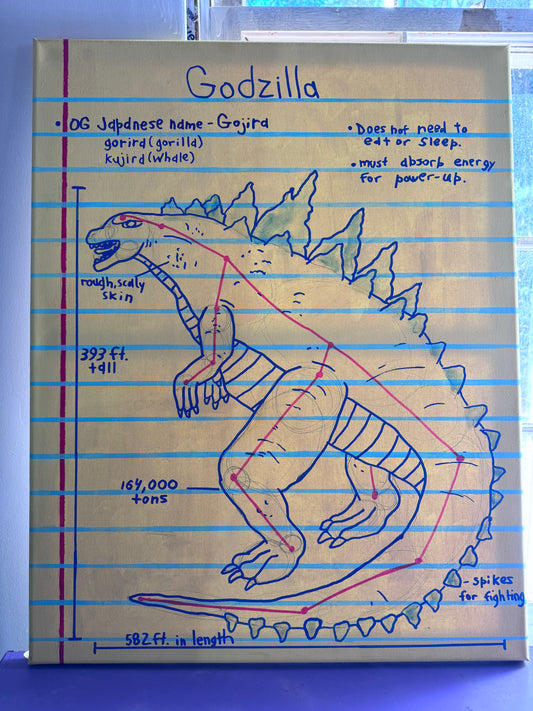 Godzilla
• OG Japanese name - Gojira
gorird (gorilla)
kujird (whale)
• Does not need to
eat or sleep.
• must absorb energy
for power-up.
rough, scaly
skin
393 ft.
tall
164,000
tons
- spikes
for fighting
582 ft. in length